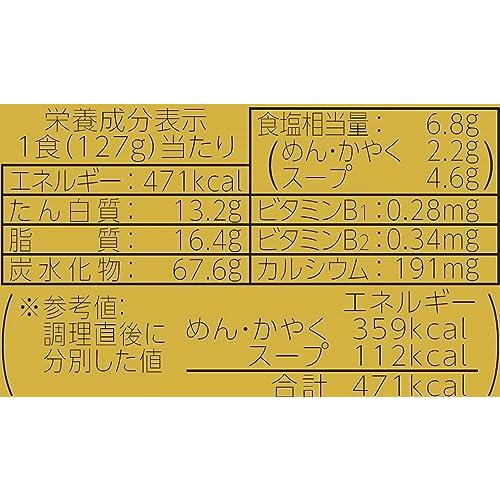 栄養成分表示
1食(127g)当たり
エネルギー：471kcal
たん白質：13.2g
脂質：16.4g
炭水化物：67.6g
食塩相当量：6.8g
(めん・かやく 2.2g
スープ 4.6g)
ビタミンB1：0.28mg
ビタミンB2：0.34mg
カルシウム：191mg
(※参考値:
調理直後に
分別した値
エネルギー
めん・かやく 359kcal
スープ 112kcal
合計 471kcal)